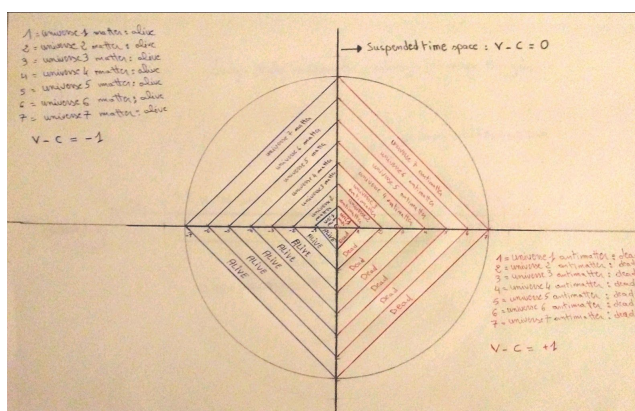 1 = universe 1 matter : alive
2 = universe 2 matter : alive
3 = universe 3 matter : alive
4 = universe 4 matter : alive
5 = universe 5 matter : alive
6 = universe 6 matter : alive
7 = universe 7 matter : alive
V - C = -1
Suspended time space : V - C = 0
universe 7 matter
universe 6 matter
universe 5 matter
universe 4 matter
universe 3 matter
universe 7 antimatter
universe 6 antimatter
universe 5 antimatter
universe 4 antimatter
Alive
Alive
Alive
Alive
Alive
Alive
Alive
Dead
Dead
Dead
Dead
Dead
Dead
1 = universe 1 antimatter : dead
2 = universe 2 antimatter : dead
3 = universe 3 antimatter : dead
4 = universe 4 antimatter : dead
5 = universe 5 antimatter : dead
6 = universe 6 antimatter : dead
7 = universe 7 antimatter : dead
V - C = +1